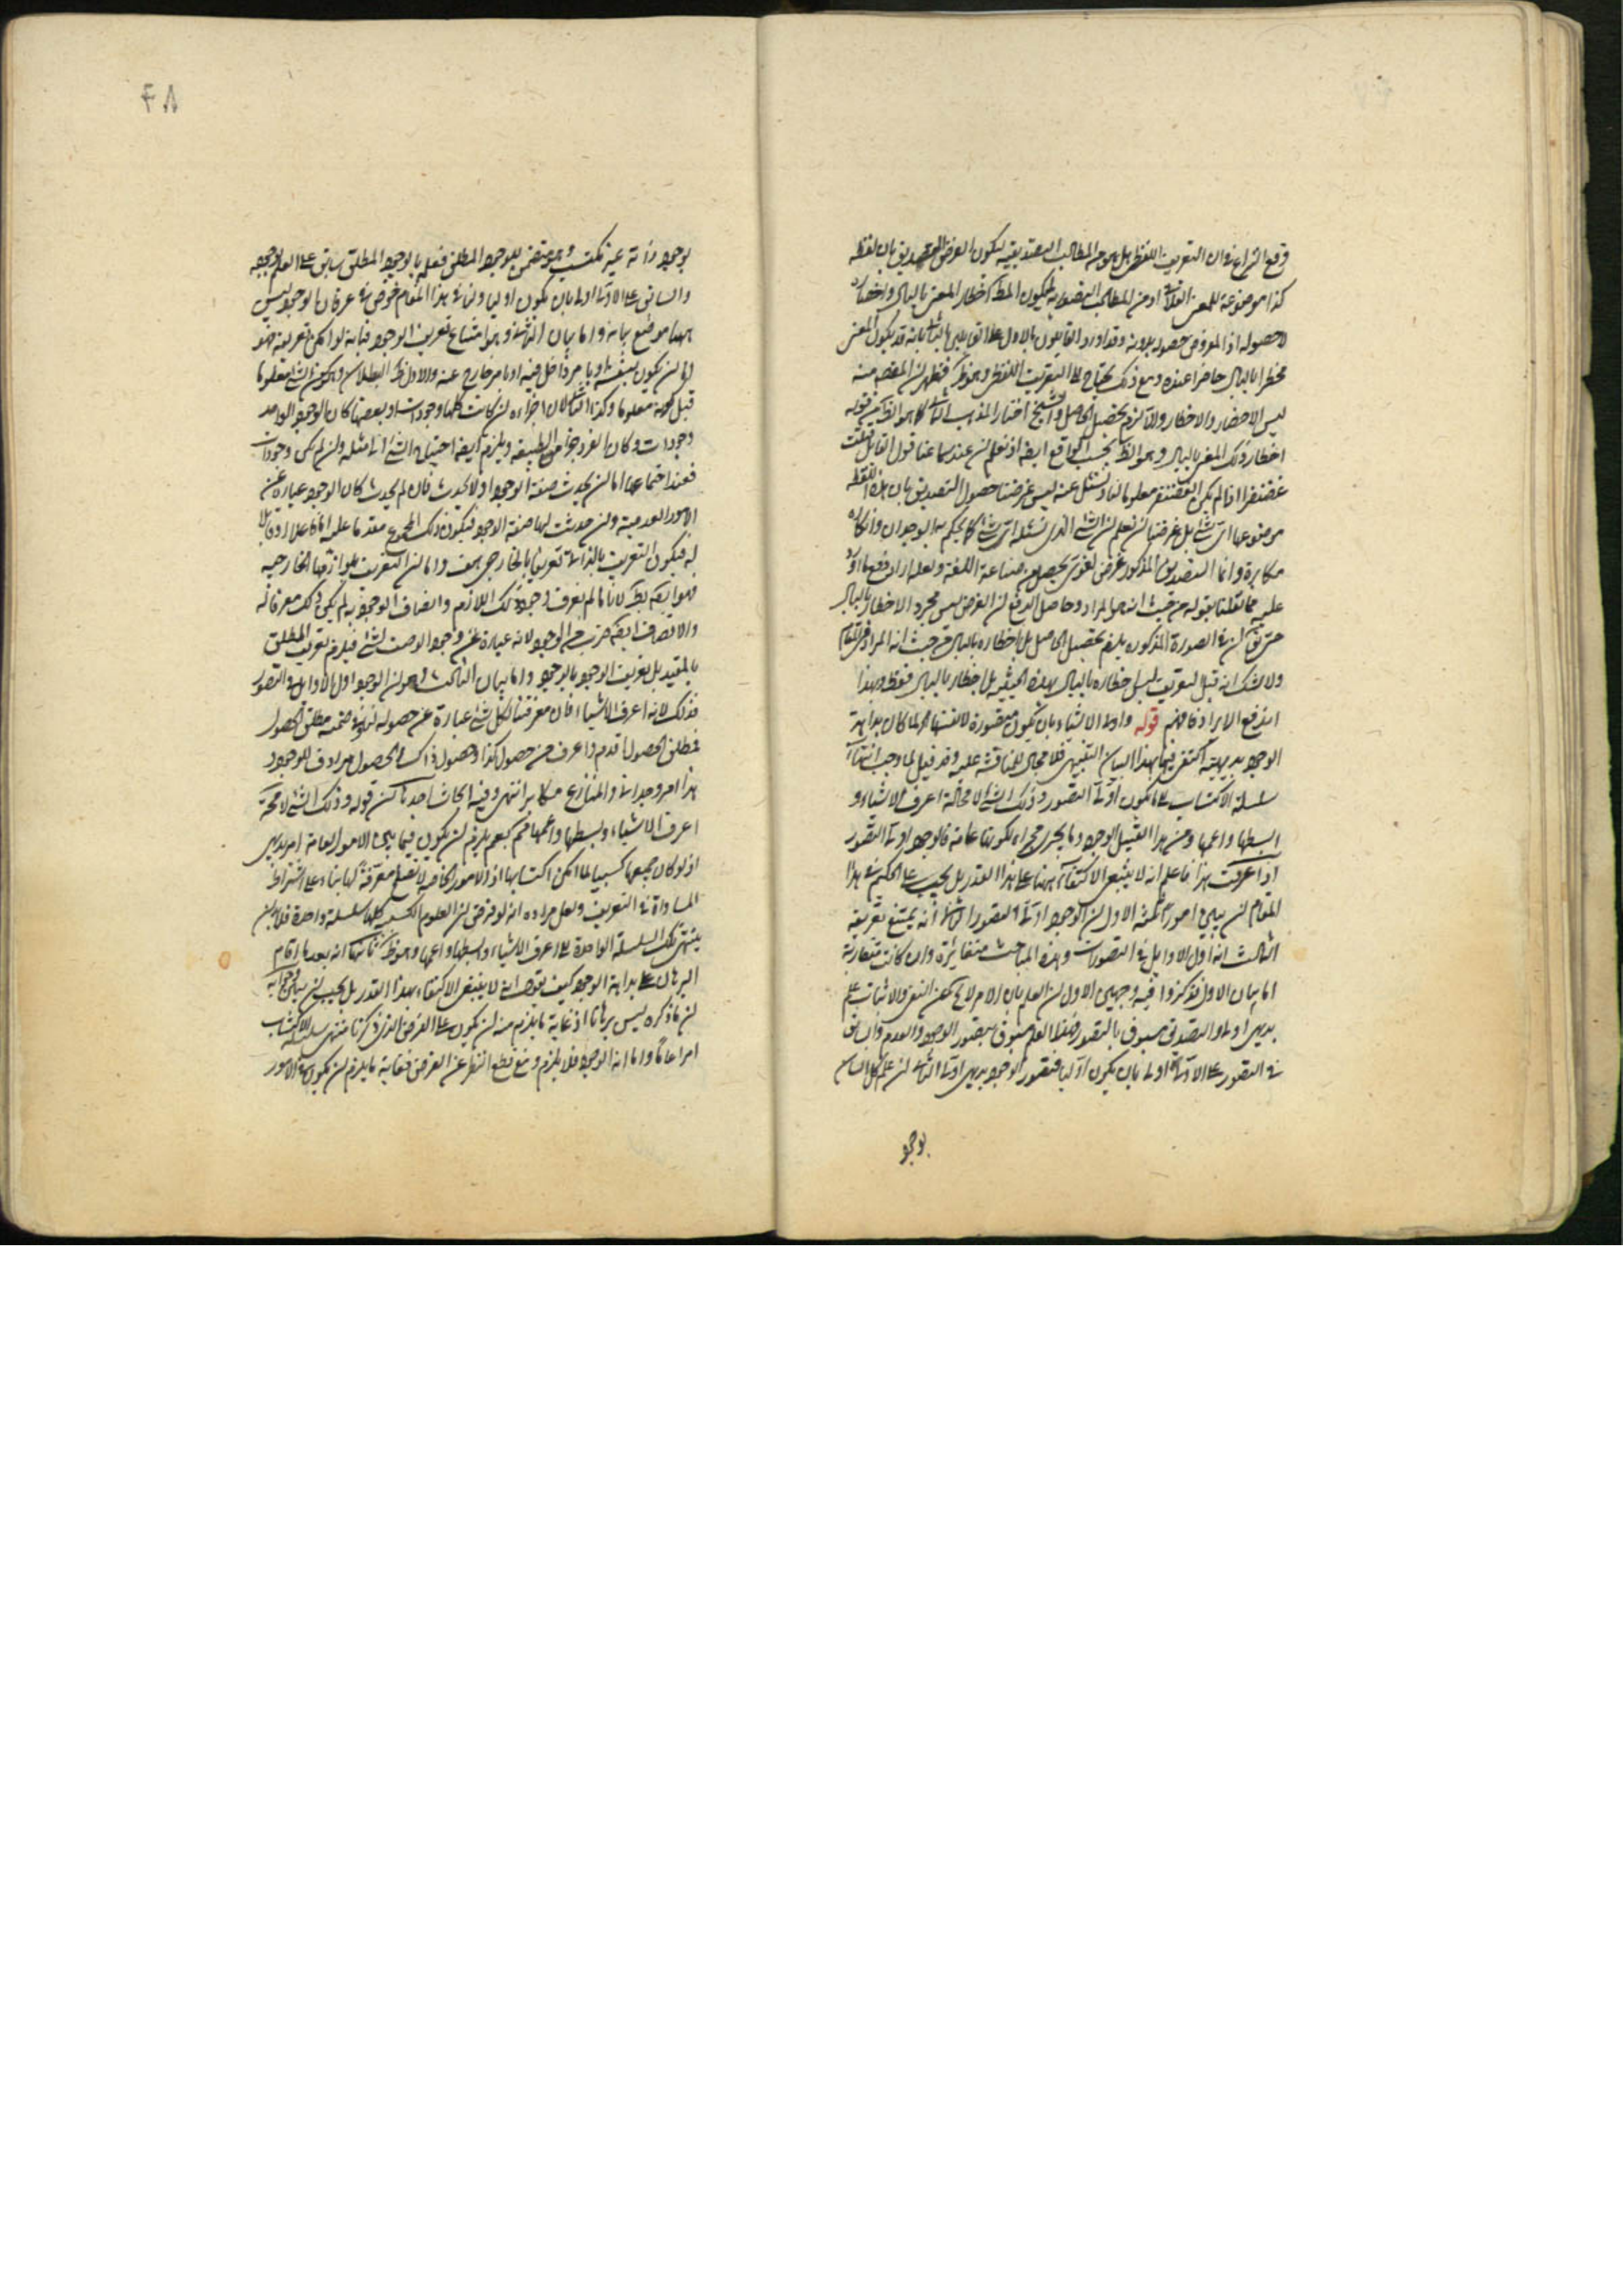 وقع النزاع في ان التعريف اللفظي هل هو من المطالب التصديقية ليكون الغرض التصديق بان لفظ
كذا موضوعة للمعنى الفلاني او من المطالب التصورية ليكون المط اخطار المعنى بالبال واحضاره
لا حصوله اذ المفروض حصوله بدونه وقد اورد القايلون بالاول على القايلين بالثاني بانه قد يكون المعنى
مخطرا بالبال حاضرا عنده ومع ذلك يحتاج الى التعريف اللفظي وهو ظ فظهر ان المقصد منه
ليس الاحضار والاخطار والا لزم تحصيل الحاصل والشيخ اختار المذهب الثاني كما هو الظ من قوله
اخطار ذلك المعنى بالبال وهو الظ بحسب الواقع ايضا اذ نعلم ان عند سماعنا قول القايل قتلت
غضنفرا اذا لم يكن الغضنفر معلوما لنا ونسئل عنه ليس غرضنا حصول التصديق بان هذا اللفظ
موضوعها اي شئ بل غرضنا ان نعلم ان الشئ الذي نسئله اي شئ كما يحكم به الوجدان وانكاره
مكابرة وانما التصديق المذكور غرض لغوي يحصل من صناعة اللغة ولعله اراد دفع ما اورد
عليه مما نقلنا بقوله من حيث انه هو المراد وحاصل الدفع ان الغرض ليس مجرد الاخطار بالبال
حتى يق ان في الصورة المذكورة يلزم تحصيل الحاصل بل اخطاره بالبال من حيث انه المراد في المقام
ولا شك انه قبل التعريف ليس اخطاره بالبال بهذه الحيثية بل اخطار بالبال فقط وبهذا
اندفع الايراد فافهم قوله واولى الاشياء بان يكون متصورة لانفسها لما كان بداهة
الوجود بديهية اكتفى فيها بهذا البيان التنبيهي فلا مجال للمناقشة عليه وقد قيل لما وجب انتهاء
سلسلة الاكتساب الى ما يكون اولى التصور وذلك الشئ لا محالة اعرف الاشياء و
ابسطها واعمها ومن هذا القبيل الوجود وما يجري مجراه لكونها عامة فالوجود اولى التصور
اذا عرفت هذا فاعلم انه لا ينبغي الاكتفاء ههنا على هذا القدر بل يجب على الحكيم في هذا
المقام ان يبين امور ثلثة الاول ان الوجود اولى التصور الثاني انه يمتنع تعريفه
الثالث انه اول الاوايل في التصورات وهذه المباحث متغايرة وان كانت متقاربة
اما بيان الاول فذكروا فيه وجهين الاول ان العلم بان الامر لا يخ عن النفي والاثبات علم
بديهي اولى والتصديق مسبوق بالتصور فهذا العلم مسبوق بتصور الوجود والعدم والسابق
في التصور على الاولي اولى بان يكون اوليا فتصور الوجود بديهي اولى الثاني ان علم كل انسان
بوجو
٤٨
بوجود ذاته غير مكتسب وهو متضمن للوجود المطلق فعلمه بالوجود المطلق سابق على العلم بوجوده
والسابق على الاولي اولى بان يكون اوليا ولنا في هذا المقام خوض في عرفان الوجود ليس
ههنا موضع بيانه واما بيان الثاني وهو امتناع تعريف الوجود فبانه لو امكن تعريفه فهو
اما ان يكون بنفسه او بامر داخل فيه او بامر خارج عنه والاول ظ البطلان وهو كون الشئ معلوما
قبل كونه معلوما وكذا الثاني لان اجزاءه ان كانت كلها وجودات او بعضها كان الوجود الواحد
وجودات وكان الفرد جزء من الطبيعة ويلزم ايضا احتياج الشئ الى مثله وان لم يكن وجودات
فعند اجتماعها اما ان يحدث صفة الوجود او لا يحدث فان لم يحدث كان الوجود عبارة عن
الامور العدمية وان حدثت لها صفة الوجود فيكون ذلك المجموع متقدما عليه اما فاعلا او قابلا
له فيكون التعريف بالذاتي تعريفا بالخارجي هف واما ان التعريف بلوازمها الخارجية
فهو ايضا بط لانا ما لم نعرف وجود ذلك اللازم واتصاف الوجود به لم يكن ذلك معرفا له
والاتصاف ايضا ضرب من الوجود لانه عبارة عن وجود الوصف لشئ فيلزم تعريف المطلق
بالمقيد بل تعريف الوجود بالوجود واما بيان الثالث وهو ان الوجود اول الاوايل في التصور
فذلك لانه اعرف الاشياء فان معرفتنا لكل شئ عبارة عن حصوله لنا وفي ضمنه مطلق الحصول
فمطلق الحصول اقدم واعرف من حصول كذا وحصول ذاك والحصول مرادف للوجود
هذا امر وجداني والمنازع مكابر انتهى وفيه ابحاث احدها ان قوله وذلك الشئ لا محة
اعرف الاشياء وابسطها واعمها مم نعم يلزم ان يكون فيما بين الامور العامة امر بديهي
اذ لو كان جميعها كسبيا لما امكن اكتسابها اذ الامور الخاصة لا تصلح معرفة لها بناء على اشتراط
المساواة في التعريف ولعل مراده انه لو فرض ان العلوم الكسبية كلها سلسلة واحدة فلا بد ان
ينتهي تلك السلسلة الواحدة الى اعرف الاشياء وابسطها واعمها وهو ظ ثانيها انه بعد ما اقام
البرهان على بداهة الوجود كيف يقول انه لا ينبغي الاكتفاء بهذا القدر بل يجب ان يبين وجوابه
ان ما ذكره ليس برهانا اذ غاية ما يلزم منه ان يكون على الفرض الذي ذكرنا منتهى سلسلة الاكتساب
امرا عاما واما انه الوجود فلا يلزم ومع قطع النظر عن الفرض فغاية ما يلزم ان يكون في الامور